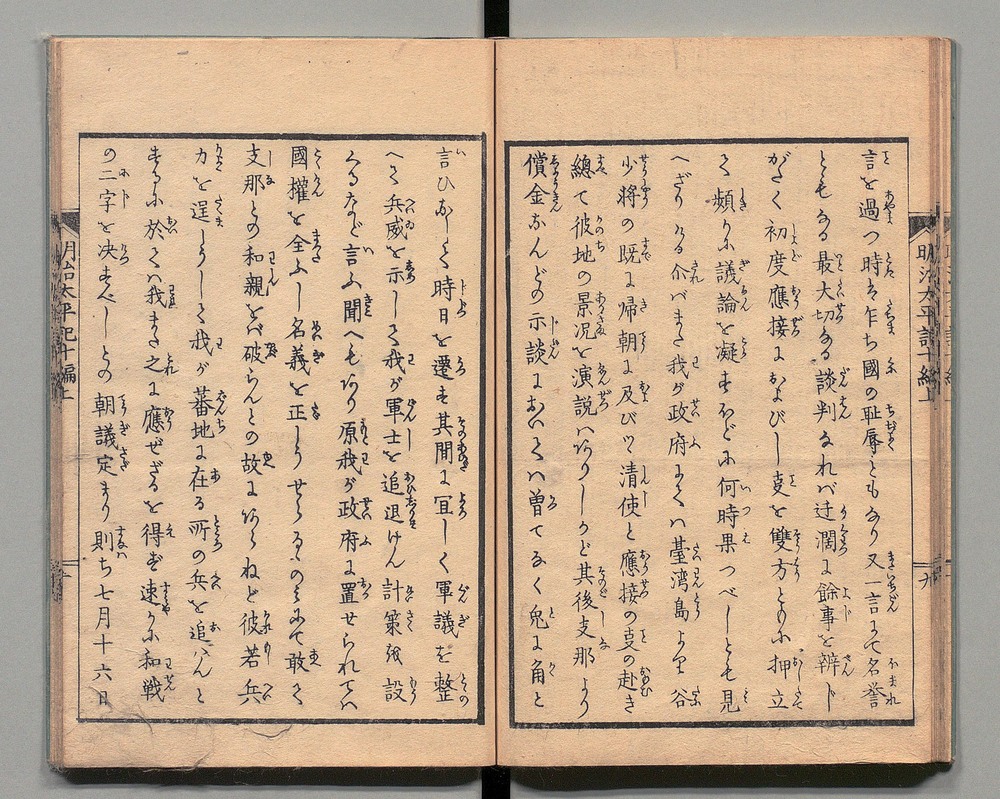 言を過つ時は乍ち國の耻辱ともなり又一言にて名誉
ともなる最大切なる談判なれバ迂濶に餘事を辨じ
がたく初度應接におよびし叓を雙方ともに押立
て頻りに議論を凝すほどに何時果つべしとも見
へざりける尒バまた我が政府にてハ臺湾島より谷
少将の既に帰朝に及びツ清使と應接の叓の赴き
總て彼地の景况を演説ハありしかど其後支那より
償金なんどの示談においてハ曽てなく兎に角と
明治太平記十編上
九
言ひなして時日を遷す其間に宜しく軍議を整
へて兵威を示して我が軍士を追退けん計策を設
くるなど言ふ聞へもあり原我が政府に置せられてハ
國權を全ふし名義を正しうせらるゝのミにて敢て
支那との和親をバ破らんとの故にあらねど彼若兵
力を逞しうして我が蕃地に在る所の兵を追ハんと
するに於てハ我また之に應ぜざるを得ず速に和戦
の二字を决すべしとの朝議定まり則ち七月十六日
明治太平記十編上